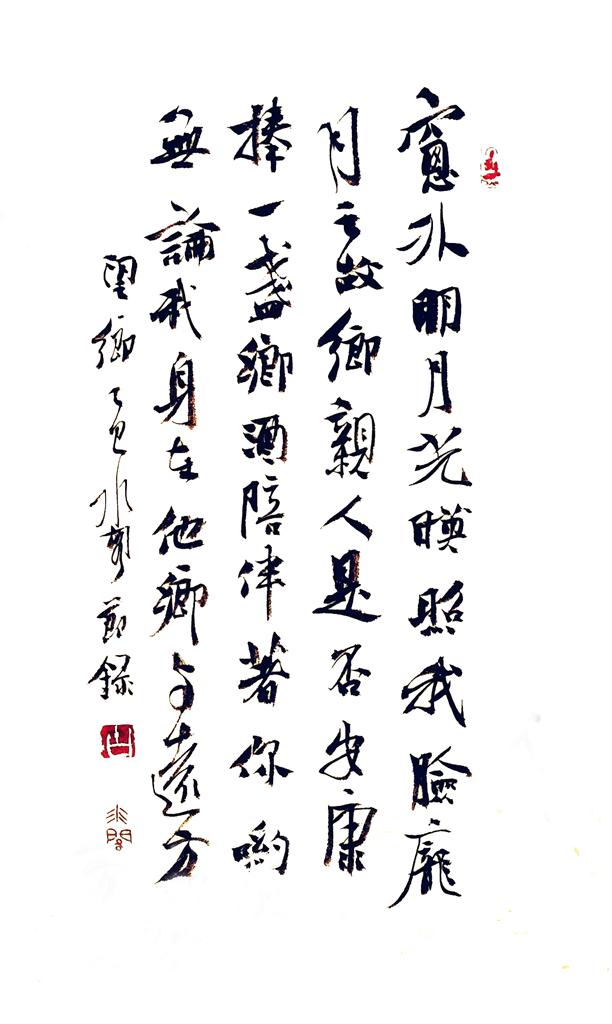 窻外明月光暎照我臉龐
月之故鄉親人是否安康
捧一盞鄉酒陪伴著你喲
無論我身在他鄉與遠方
望鄉 乙巳 節錄